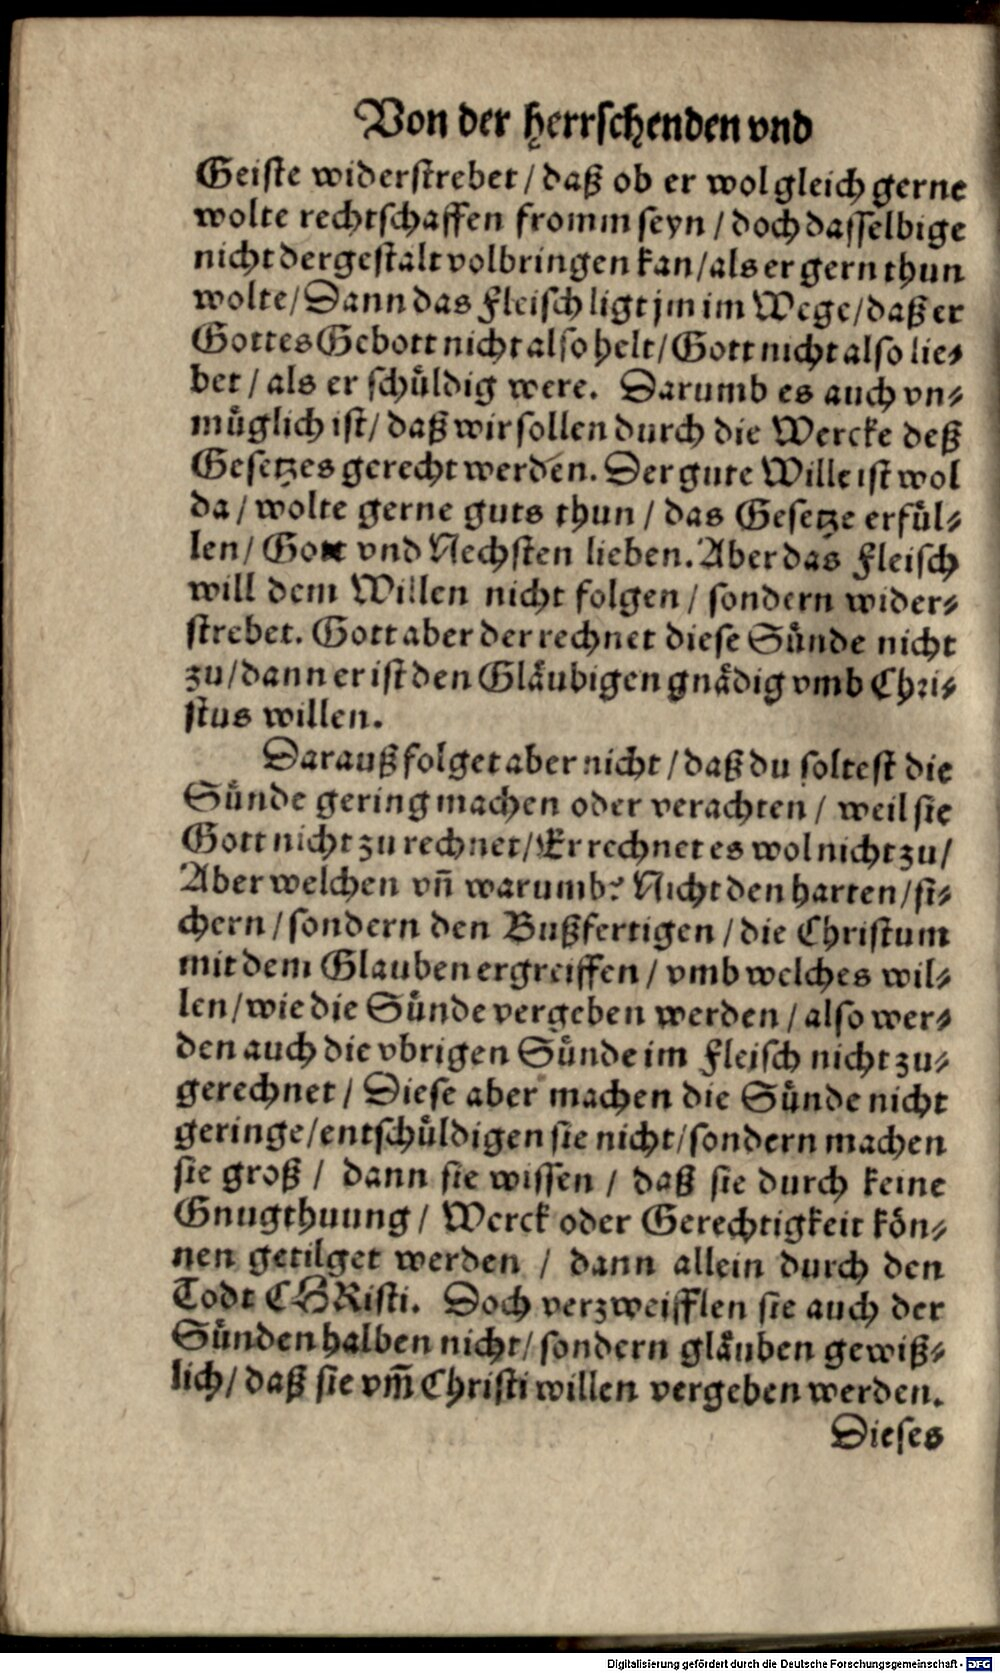 Von der herrschenden vnd
Geiste widerstrebet / daß ob er wol gleich gerne
wolte rechtschaffen fromm seyn / doch dasselbige
nicht dergestalt volbringen kan / als er gern thun
wolte / Dann das Fleisch ligt jm im Wege / daß er
Gottes Gebott nicht also helt / Gott nicht also lie-
bet / als er schuͤldig were. Darumb es auch vn-
muͤglich ist / daß wir sollen durch die Wercke deß
Gesetzes gerecht werden. Der gute Wille ist wol
da / wolte gerne guts thun / das Gesetze erfuͤl-
len / Gott vnd Nechsten lieben. Aber das Fleisch
will dem Willen nicht folgen / sondern wider-
strebet. Gott aber der rechnet diese Suͤnde nicht
zu / dann er ist den Glaͤubigen gnaͤdig vmb Chri-
stus willen.
Darauß folget aber nicht / daß du soltest die
Suͤnde gering machen oder verachten / weil sie
Gott nicht zu rechnet / Er rechnet es wol nicht zu /
Aber welchen vñ warumb? Nicht den harten / si-
chern / sondern den Bußfertigen / die Christum
mit dem Glauben ergreiffen / vmb welches wil-
len / wie die Suͤnde vergeben werden / also wer-
den auch die vbrigen Suͤnde im Fleisch nicht zu-
gerechnet / Diese aber machen die Suͤnde nicht
geringe / entschuͤldigen sie nicht / sondern machen
sie groß / dann sie wissen / daß sie durch keine
Gnugthuung / Werck oder Gerechtigkeit koͤn-
nen getilget werden / dann allein durch den
Todt CHRisti. Doch verzweifflen sie auch der
Suͤnden halben nicht / sondern glaͤuben gewiß-
lich / daß sie vm̃ Christi willen vergeben werden.
Dieses
Digitalisierung gefördert durch die Deutsche Forschungsgemeinschaft - DFG